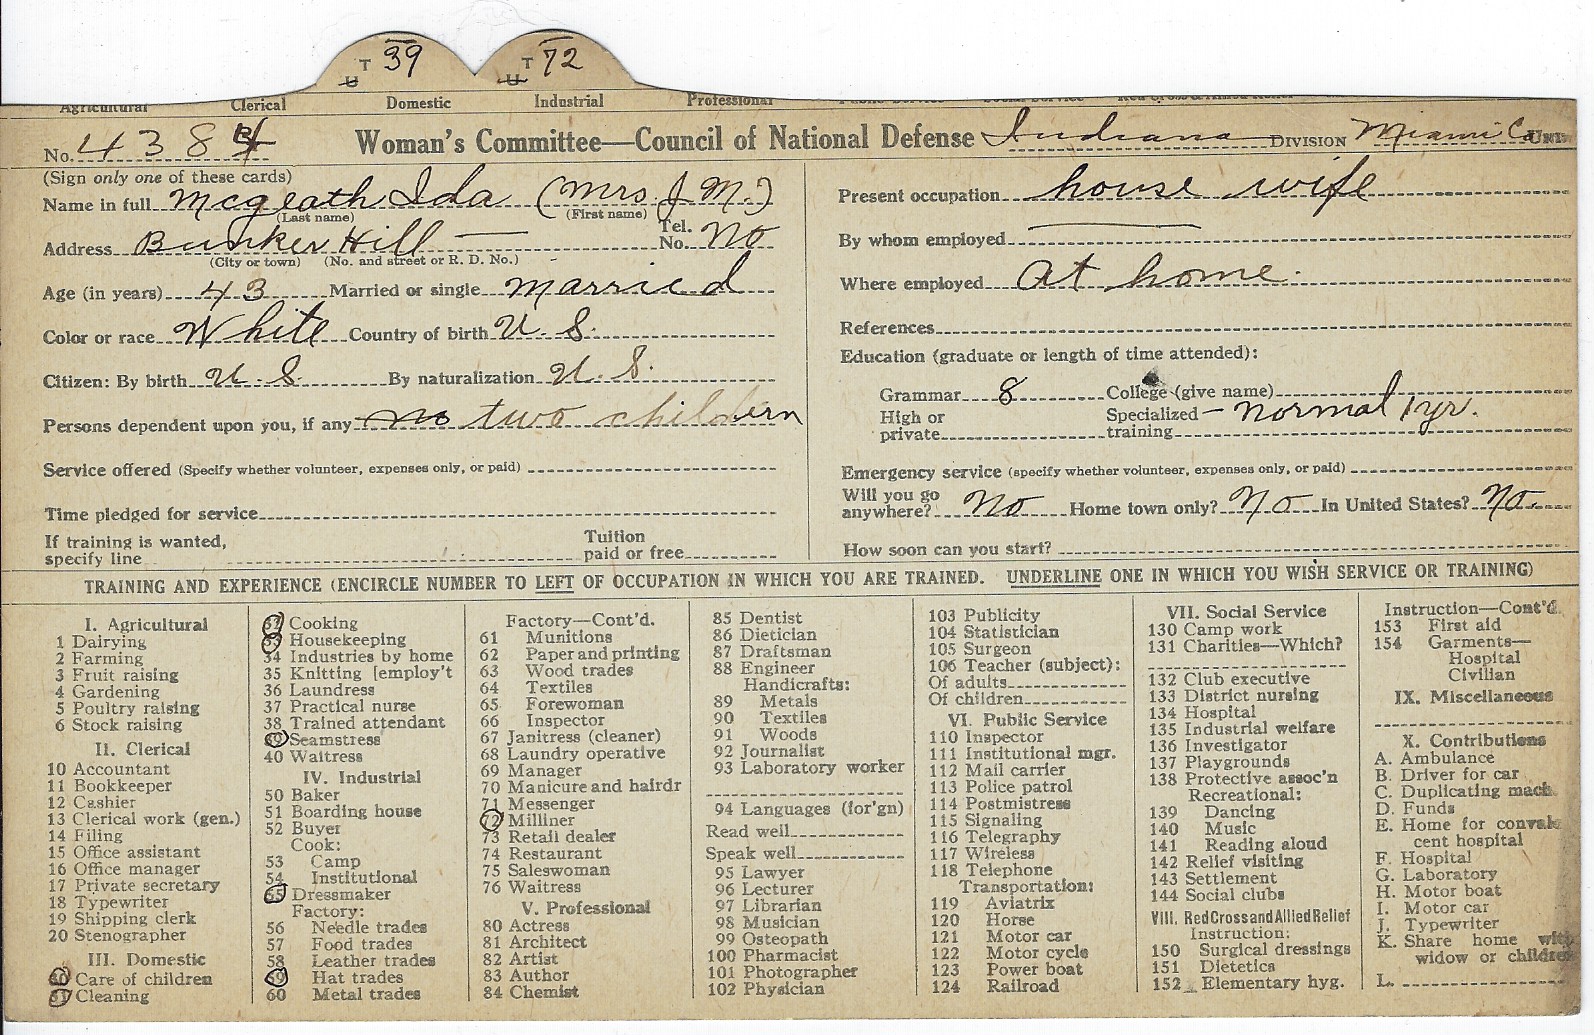 T 39 T 72
U U
Agricultural Clerical Domestic Industrial Professional
No. 4384 Woman's Committee—Council of National Defense Indiana DIVISION Miami Co. UNIT
(Sign only one of these cards)
Name in full Mcgeath Ida (Mrs. J. M.)
(Last name) (First name)
Address Bunker Hill — Tel. No. No
(City or town) (No. and street or R. D. No.)
Age (in years) 43 Married or single married
Color or race White Country of birth U. S.
Citizen: By birth U. S. By naturalization U. S.
Persons dependent upon you, if any no two childern
Service offered (Specify whether volunteer, expenses only, or paid)
Time pledged for service
If training is wanted, specify line Tuition paid or free
Present occupation house wife
By whom employed —
Where employed at home.
References
Education (graduate or length of time attended):
Grammar 8 College (give name)
High or private Specialized training — normal 1 yr.
Emergency service (specify whether volunteer, expenses only, or paid)
Will you go anywhere? No Home town only? No In United States? No.
How soon can you start?
TRAINING AND EXPERIENCE (ENCIRCLE NUMBER TO LEFT OF OCCUPATION IN WHICH YOU ARE TRAINED. UNDERLINE ONE IN WHICH YOU WISH SERVICE OR TRAINING)
I. Agricultural
1 Dairying
2 Farming
3 Fruit raising
4 Gardening
5 Poultry raising
6 Stock raising
II. Clerical
10 Accountant
11 Bookkeeper
12 Cashier
13 Clerical work (gen.)
14 Filing
15 Office assistant
16 Office manager
17 Private secretary
18 Typewriter
19 Shipping clerk
20 Stenographer
III. Domestic
30 Care of children
31 Cleaning
32 Cooking
33 Housekeeping
34 Industries by home
35 Knitting [employ't
36 Laundress
37 Practical nurse
38 Trained attendant
39 Seamstress
40 Waitress
IV. Industrial
50 Baker
51 Boarding house
52 Buyer
Cook:
53 Camp
54 Institutional
55 Dressmaker
Factory:
56 Needle trades
57 Food trades
58 Leather trades
59 Hat trades
60 Metal trades
Factory—Cont'd.
61 Munitions
62 Paper and printing
63 Wood trades
64 Textiles
65 Forewoman
66 Inspector
67 Janitress (cleaner)
68 Laundry operative
69 Manager
70 Manicure and hairdr
71 Messenger
72 Milliner
73 Retail dealer
74 Restaurant
75 Saleswoman
76 Waitress
V. Professional
80 Actress
81 Architect
82 Artist
83 Author
84 Chemist
85 Dentist
86 Dietician
87 Draftsman
88 Engineer
Handicrafts:
89 Metals
90 Textiles
91 Woods
92 Journalist
93 Laboratory worker
94 Languages (for'gn)
Read well
Speak well
95 Lawyer
96 Lecturer
97 Librarian
98 Musician
99 Osteopath
100 Pharmacist
101 Photographer
102 Physician
103 Publicity
104 Statistician
105 Surgeon
106 Teacher (subject):
Of adults
Of children
VI. Public Service
110 Inspector
111 Institutional mgr.
112 Mail carrier
113 Police patrol
114 Postmistress
115 Signaling
116 Telegraphy
117 Wireless
118 Telephone
Transportation:
119 Aviatrix
120 Horse
121 Motor car
122 Motor cycle
123 Power boat
124 Railroad
VII. Social Service
130 Camp work
131 Charities—Which?
132 Club executive
133 District nursing
134 Hospital
135 Industrial welfare
136 Investigator
137 Playgrounds
138 Protective assoc'n
Recreational:
139 Dancing
140 Music
141 Reading aloud
142 Relief visiting
143 Settlement
144 Social clubs
VIII. Red Cross and Allied Relief
Instruction:
150 Surgical dressings
151 Dietetics
152 Elementary hyg.
Instruction—Cont'd.
153 First aid
154 Garments—
Hospital
Civilian
IX. Miscellaneous
X. Contributions
A. Ambulance
B. Driver for car
C. Duplicating mach.
D. Funds
E. Home for convales
cent hospital
F. Hospital
G. Laboratory
H. Motor boat
I. Motor car
J. Typewriter
K. Share home with
widow or children
L.